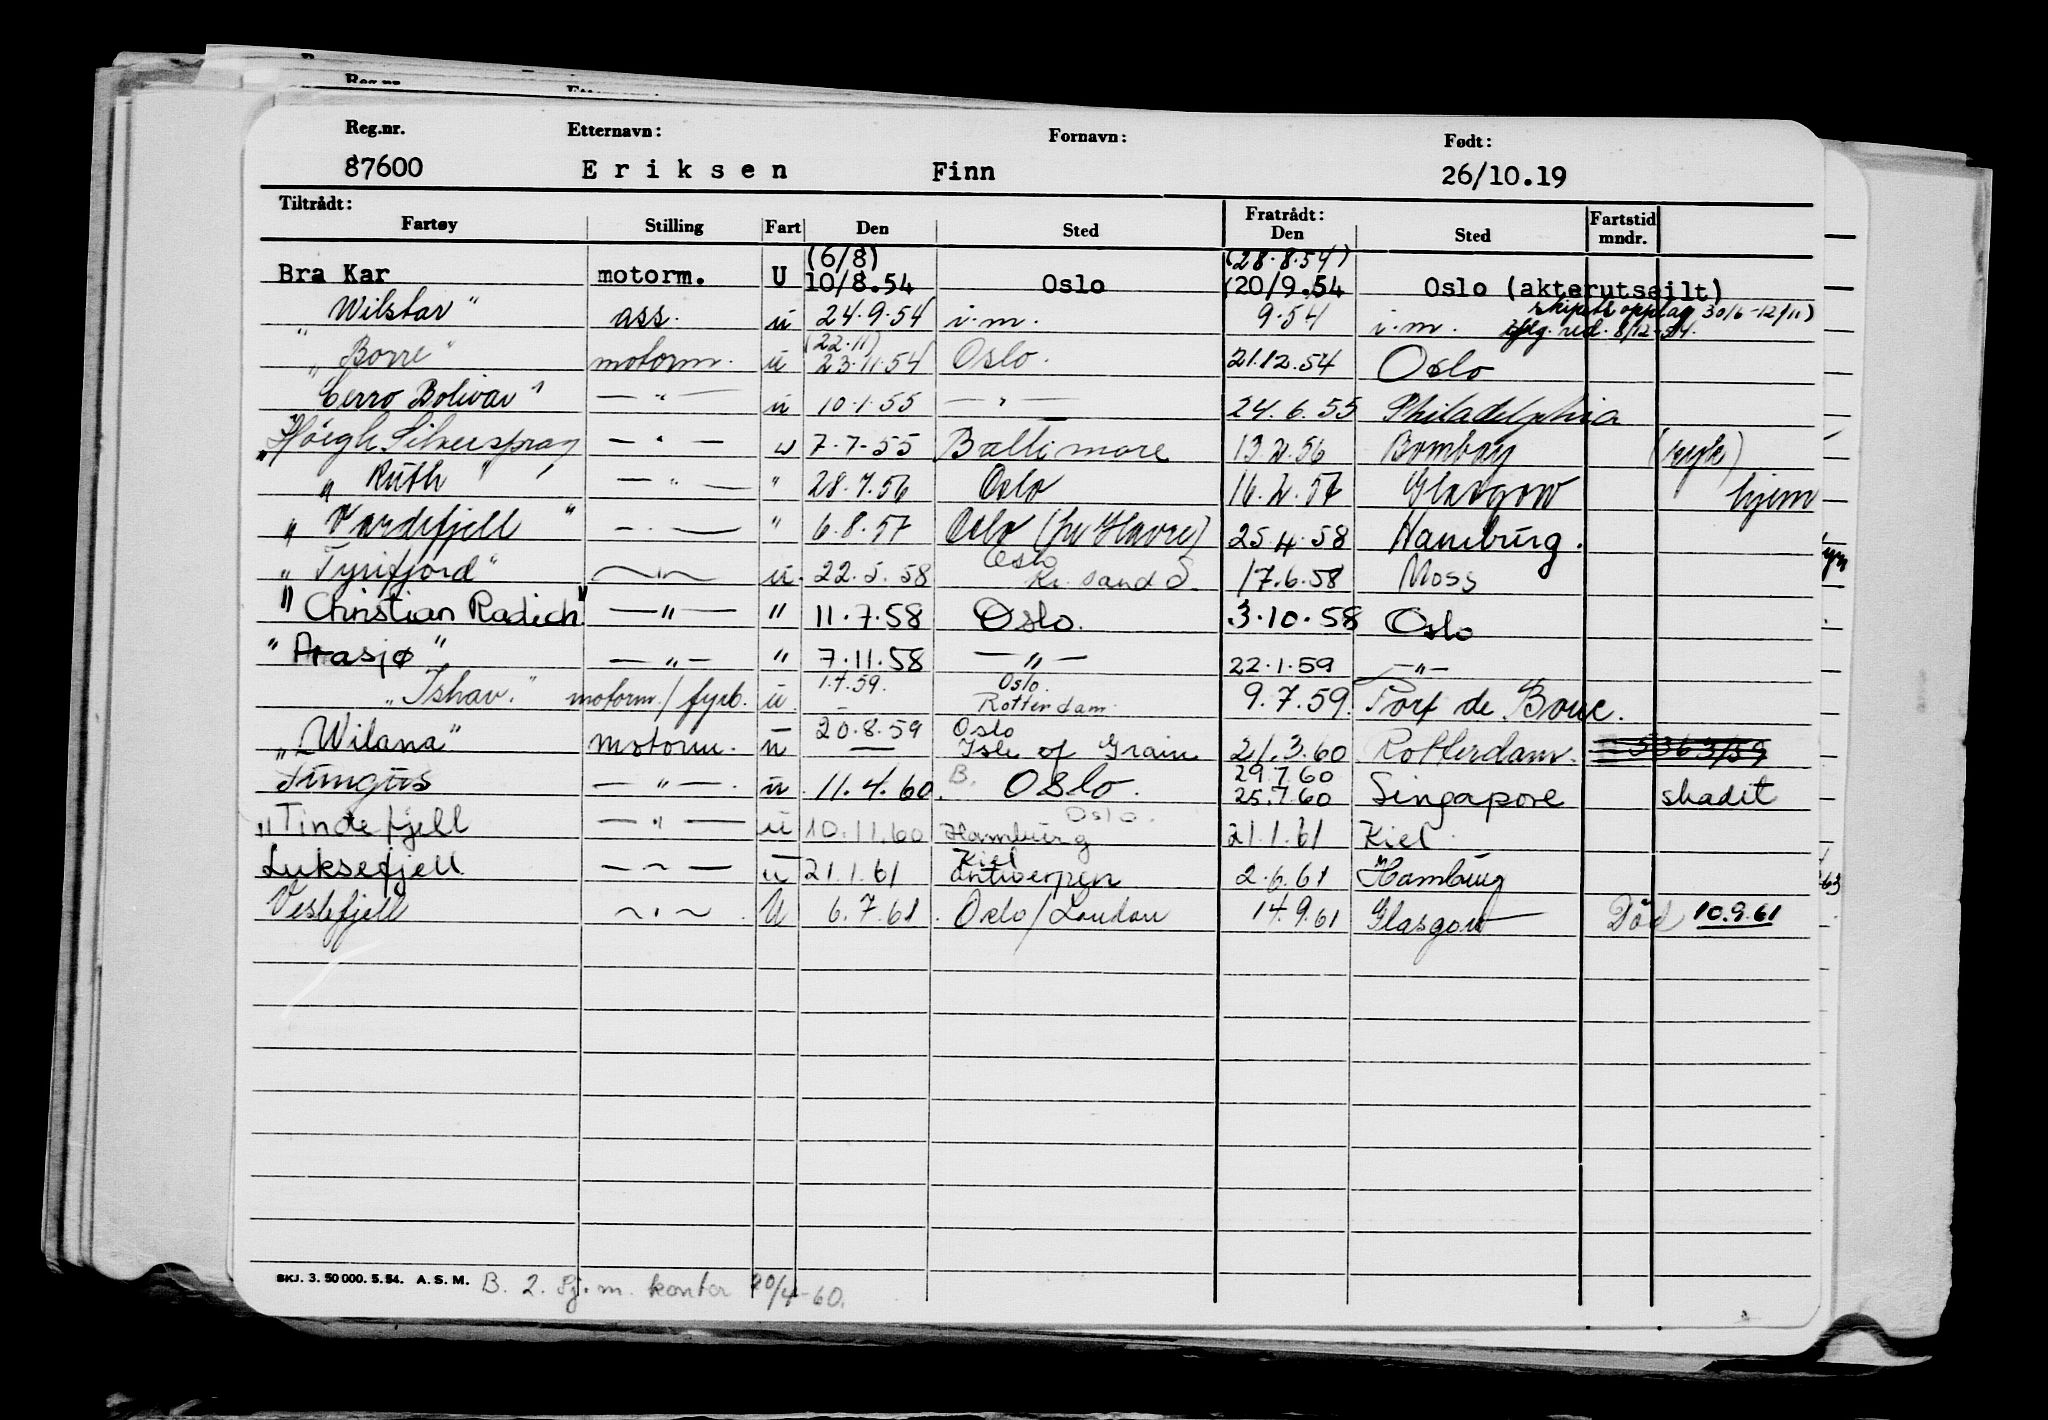 Reg.nr. Etternavn: Fornavn: Født:
87600 Eriksen Finn 26/10.19
Tiltrådt: Fratrådt: Fartstid
Fartøy Stilling Fart Den Sted Den Sted mndr.
(6/8) (28.8.54)
Bra Kar motorm. U 10/8.54 Oslo (20/9.54 Oslo (akterutseilt)
" Wilstar" ass. u 24.9.54 i.m. 9.54 i.m. skipet i opplag 30/6-12/11)
iflg. red. 8/12-54.
(22.11)
" Borre" motorm. u 23.11.54 Oslo. 21.12.54 Oslo
"Cerro Bolivar" — " — u 10.1.55 — " — 24.6.55 Philadelphia
"Höegh Silverspray — " — u 7-7-55 Baltimore 13.2.56 Bombay (syk)
" Ruth " — " — " 28.7.56 Oslo 16.2.57 Glasgow hjem
" Vardefjell " — " — " 6.8.57 Oslo (Le Havre) 25.4.58 Hamburg.
Oslo
" Tyrifjord" — " — u. 22.5.58 Kr. sand S. 17.6.58 Moss
" Christian Radich" — " — " 11.7.58 Oslo. 3.10.58 Oslo
" Arasjø " — " — " 7.11.58 — " — 22.1.59 — " —
1.4.59. Oslo.
"Ishav." motorm./fyrb. u. — Rotterdam 9.7.59. Port de Bouc.
20.8.59 Oslo
" Wilana" motorm. u — Isle of Grain 21.3.60 Rotterdam. 5363/59
29.7.60
Fungus — " — u 11.4.60. B. Oslo. 25.7.60 Singapore skadet
Oslo.
"Tindefjell — " — u 10.11.60 Hamburg 21.1.61 Kiel
Kiel
Luksefjell — " — u 21.1.61 Antwerpen 2.6.61 Hamburg
Vestefjell — " — U 6.7.61. Oslo/London 14.9.61 Glasgow Död 10.9.61
SKJ. 3. 50 000. 5.54. A. S. M. B. 2. Sj. m. kontor 20/4-60.